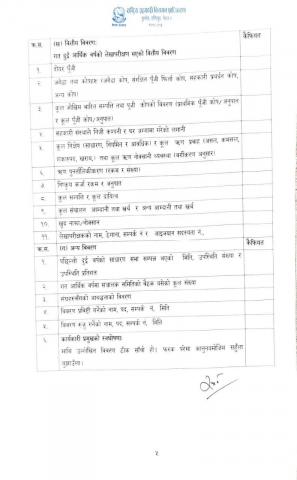 राष्ट्रिय सहकारी नियमन प्राधिकरण
क्र.स. (ख) वित्तीय विवरण: कैफियत
गत दुई आर्थिक वर्षको लेखापरीक्षण भएको वित्तीय विवरण
१. शेयर पूँजी
२. जगेडा तथा कोषहरु (जगेडा कोष, संरक्षित पूँजी फिर्ता कोष, सहकारी प्रवर्धन कोष,
अन्य कोष)
३. कुल जोखिम भारित सम्पत्ति तथा पूँजी कोषको विवरण (प्राथमिक पूँजी कोष/अनुपात
र कुल पूँजी कोष/अनुपात)
४. सहकारी संस्थाले निजी कम्पनी र घर जग्गामा गरेको लगानी
५. कुल निक्षेप (साधारण, नियमित र आवधिक) र कुल ऋण प्रवाह (असल, कमसल,
शंकास्पद, खराब,) तथा कुल ऋण नोक्सानी व्यवस्था (वर्गीकरण अनुसार)
६. ऋण पुनर्तालिकीकरण (रकम र संख्या)
७. निष्क्रिय कर्जा रकम र अनुपात
८. कुल सम्पत्ति र कुल दायित्व
९. कुल संचालन आम्दानी तथा खर्च र अन्य आम्दानी तथा खर्च
१०. खुद नाफा/नोक्सान
११. लेखापरीक्षकको नाम, ठेगाना, सम्पर्क नं र आइक्यान सदस्यता नं.
क्र.स. (ग) अन्य विवरण कैफियत
१. पछिल्लो दुई वर्षको साधारण सभा सम्पन्न भएको मिति, उपस्थिति संख्या र
उपस्थिति प्रतिशत
२. गत आर्थिक वर्षमा सञ्चालक समितिको बैठक बसेको कुल संख्या
३. संघहरुसँगको आवद्धताको विवरण
४. विवरण प्रविष्टी गर्नेको नाम, पद, सम्पर्क नं, मिति
५. विवरण रुजु गर्नेको नाम, पद, सम्पर्क नं, मिति
६. कार्यकारी प्रमुखको स्वघोषणा:
माथि उल्लेखित विवरण ठीक साँचो हो। फरक परेमा कानूनबमोजिम सहुँला
बुझाउँला।
५